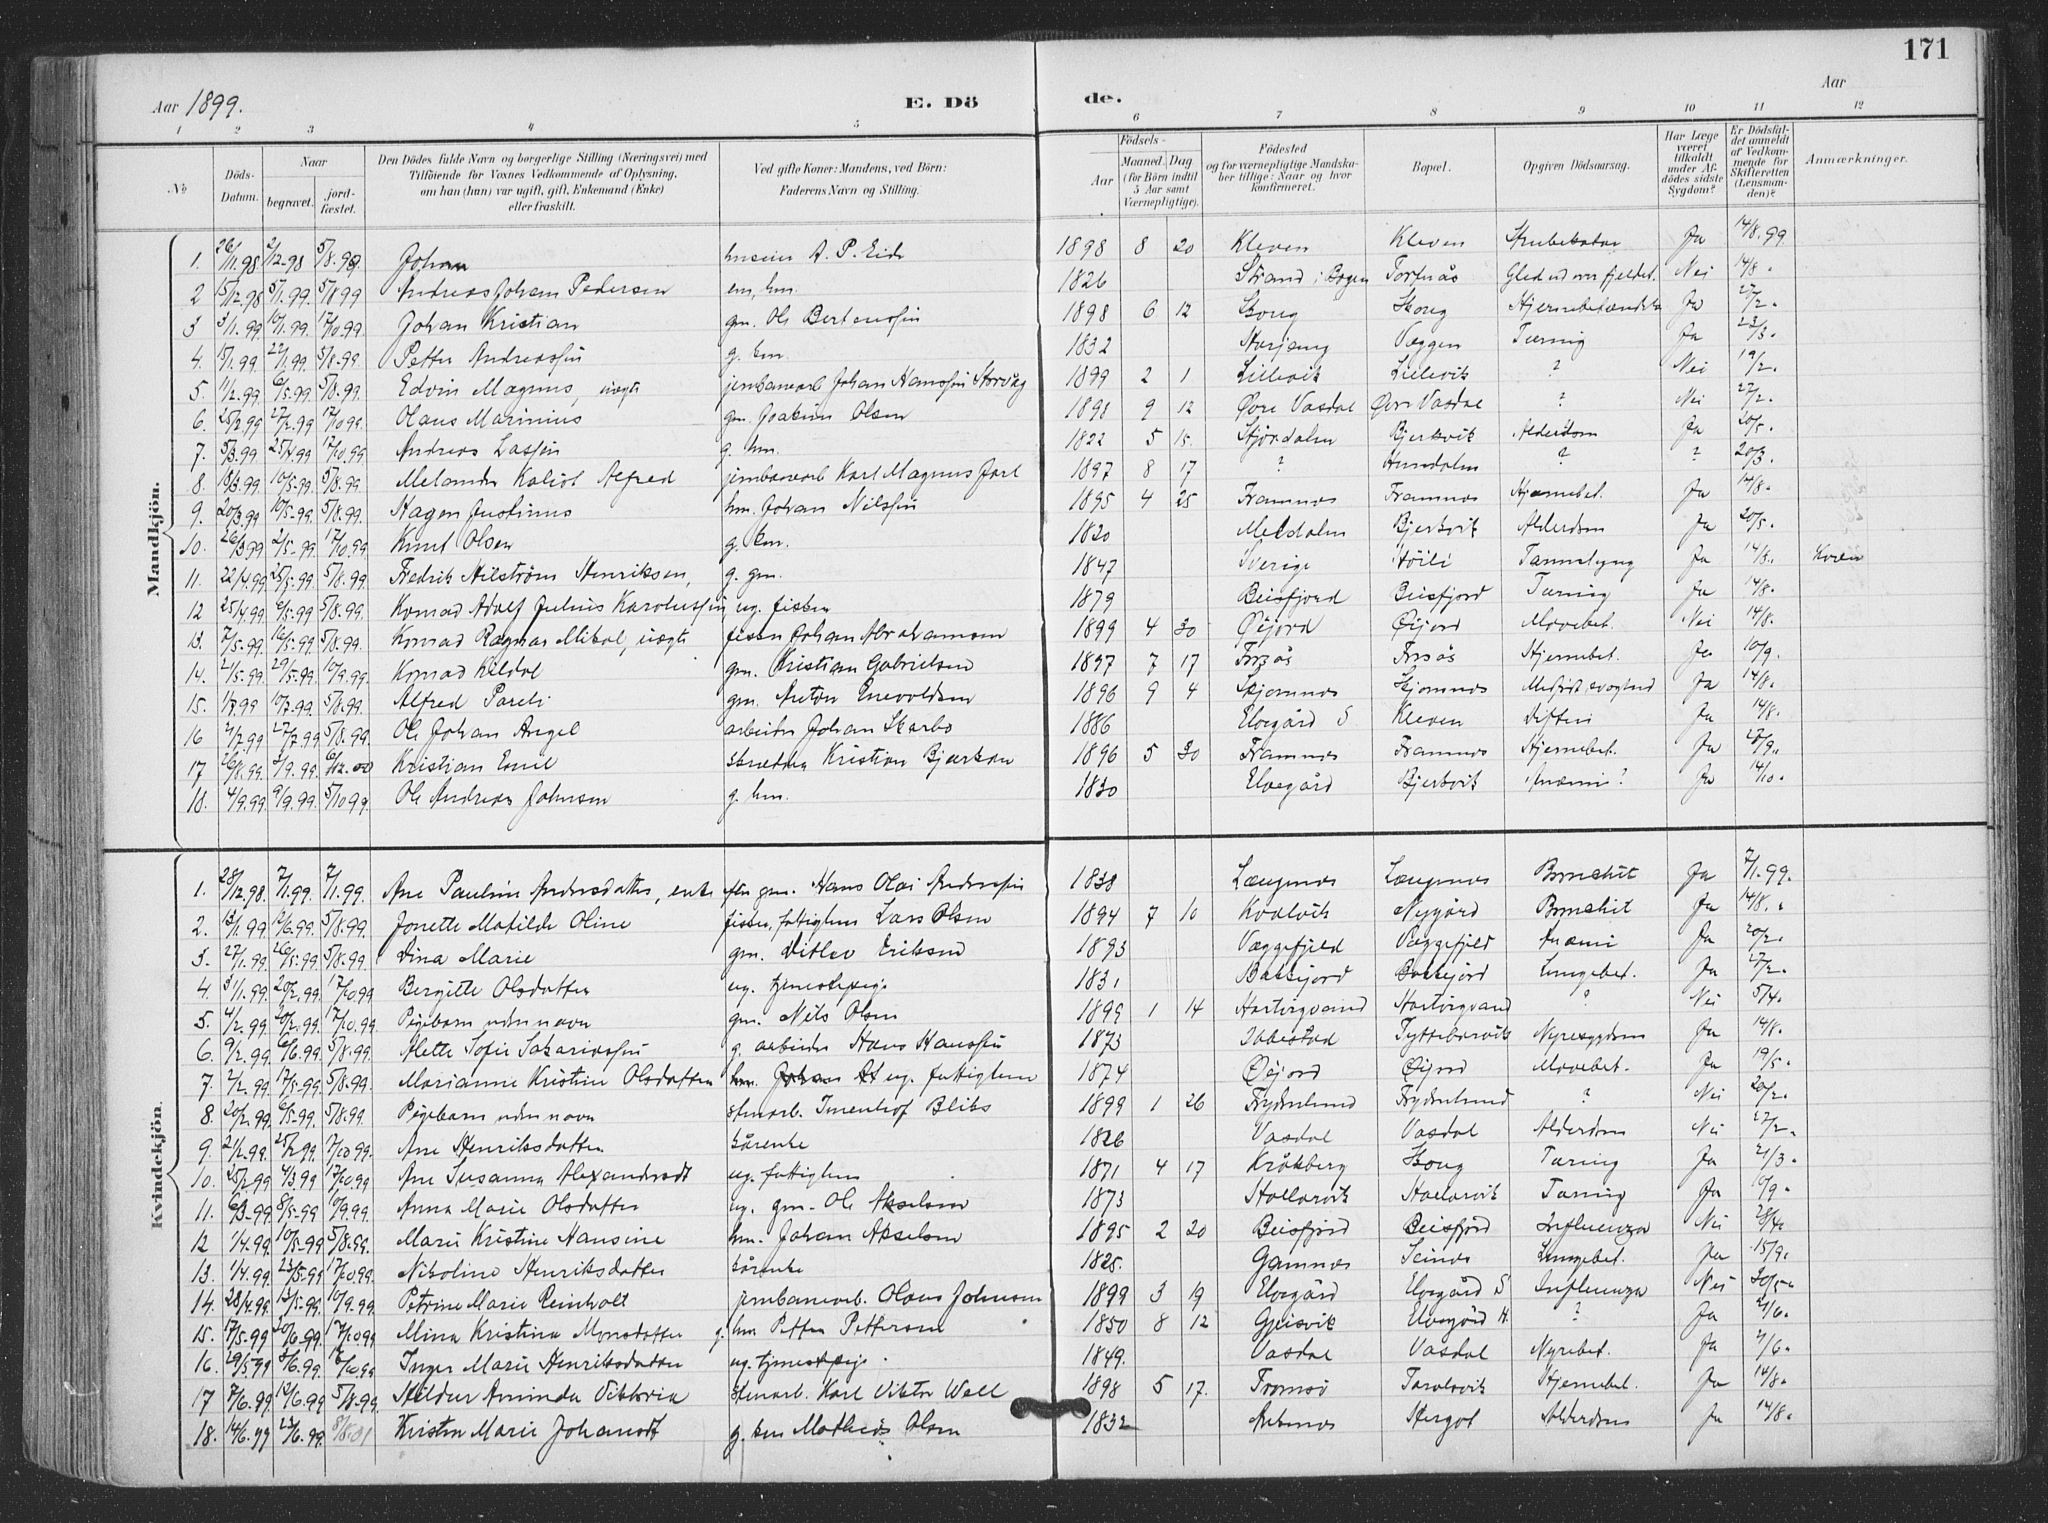 171
Aar 1899.
E. Dö de.
Aar
1 2 3 4 5 6 7 8 9 10 11 12
No
Döds-Datum.
Naar
begravet.
jord-fæstet.
Den Dödes fulde Navn og borgerlige Stilling (Næringsvei) med Tilföiende for Voxnes Vedkommende af Oplysning, om han (hun) var ugift, gift, Enkemand (Enke) eller fraskilt.
Ved gifte Koner: Mandens, ved Börn: Faderens Navn og Stilling.
Födsels-
Aar
Maaned. Dag
(for Börn indtil 5 Aar samt Værnepligtige).
Födested og for værnepligtige Mandskaber tillige: Naar og hvor konfirmeret.
Bopæl.
Opgiven Dödsaarsag.
Har Læge været tilkaldt under Afdödes sidste Sygdom?
Er Dödsfaldet anmeldt af Vedkommende for Skifteretten (Lensmanden)?
Anmærkninger.
Mandkjön.
1. 26/11.98 2/12-98 5/8.99 Johan husein A. P. Eide 1898 8 20 Kleven Kleven Ja 14/8.99
2 15/12.98 5/1.99. 5/8 99 Andreas Johan Pedersen em, hm. 1826 Strand i Bogen Tortnås Gled ud over fjeldet. Nei 14/8.
3 3/1.99 10/1.99. 17/10.99. Johan Kristian gm. Ole Bertenssen 1898 6 12 Skoug Skoug Ja 27/2.
4. 15/1.99 22/1.99. 5/8.99 Petter Andreassen g. km. 1832 Veggen Tæring Ja 23/3.
5. 11/2.99 6/5.99. 5/8.99. Edvin Magnus, uægte jernbanearb Johan Hanssen Storvåg 1899 2 1 Lillevik Lillevik ? Nei 19/2.
6. 25/2 99 27/2.99 17/10 99. Olaus Marinius gm. Joakim Olsen 1898 9 12 Øvre Vasdal Øvre Vasdal ? Nei 27/2.
7. 5/3.99 25/4.99 17/10.99. Andreas Lassen g. hm. 1822 5 15. Stjørdalen Bjerkvik Alderdom Ja 20/5.
8. 18/3.99 10/5-99. 5/8.99. Melander Kaliot Alfred jernbanearb Karl Magnus Jarl 1897 8 17 ? Hundalen ? ? 20/3.
9. 20/3.99 10/5-99. 5/8.99. Hagen Justinus hm. Johan Nilssen 1895 4 25 Framnes Framnes Hjernebet. Ja 14/8.
10. 26/3.99 2/5-99. 17/10.99. Knut Olsen g. km. 1820 Meldalen Bjerkvik Alderdom Ja 20/5.
11. 22/4.99 25/5.99. 5/8.99. Fredrik Hilström Henriksen, g. gm. 1847 Sverige Ja 14/8.
12 25/4.99 6/5.99 5/8.99. Konrad Adolf Julius Karolussen, ug. fisker 1879 Beisfjord Beisfjord Tæring Ja 14/8.
13. 7/5.99 16/5-99. 5/8.99. Konrad Ragnar Mikal, uægte fisker Johan Abrahamsen 1899 4 30 Øijord Øijord Mavebet. Nei 14/8.
14. 21/5.99 29/5.99. 10/9.99. Konrad Kildal gm. Kristian Gabrielsen 1897 7 17 Forsås Forsås Hjernebet. Ja 10/9.
15. 1/7.99 10/7.99. 5/8.99. Alfred Pareli gm. Anton Enevoldsen 1896 9 4 Skjomnes Skjomnes Medfødt svaghed Ja 14/8.
16 21/7.99 27/7.99 5/8.99. Ole Johan Angel arbeider Johan Skarbo 1886 Elvegård S Kleven Difteri Ja 14/8.
17 26/8.99. 3/9.99. 6/12.00 Kristian Emil skredder Kristian Bjerkan 1896 5 30 Framnes Framnes Hjernebet. Ja
18. 4/9.99. 9/9.99. 5/10 99. Ole Andreas Johnsen g. hm. 1830 Elvegård Bjerkvik Anæmi? Ja 14/10.
Kvindekjön.
1. 28/12.98 7/1.99. 7/1.99. Ane Pauline Andersdatter, enke efter gm. Hans Olai Anderssen 1838 Longenes Longenes Bronchit Ja 7/1.99.
2. 13/1.99 12/6.99. 5/8.99. Jonette Matilde Oline fisker, fattiglem Lars Olsen 1894 7 10 Kvalvik Nygård Bronchit Ja 14/8.
3. 27/1.99. 26/5.99. 5/8.99. Dina Marie gm. Ditlev Eriksen 1893 Væggefjeld Væggefjeld Anæmi Ja 20/2.
4. 31/1.99. 20/2.99. 17/10.99 Bergitte Olsdatter ug. tjenestepige 1831 Bassejord Bassejord Lungebet. Ja 27/2.
5. 4/2.99. 20/2.99. 17/10.99. Pigebarn uden navn gm. Nils Olsen 1899 1 14 Hartvigvand Hartvigvand ? Nei 5/4.
6. 9/2.99. 6/6.99. 5/8.99. Alette Sofie Sakariassen g. arbeider Hans Hanssen 1873 Ibbestad Tyttebærvik Nyresygdom Ja 14/8.
7. 2/2.99. 17/5-99. 5/8.99. Marianne Kristine Olsdatter hm. Johan A ug. fattiglem 1874 Øijord Øijord Mavebet. Ja 19/5.
8. 20/2.99. 6/5-99. 5/8.99. Pigebarn uden navn stenarb. Imenhof Bliks 1899 1 26 Frydenlund Frydenlund ? Nei 20/2.
9. 21/2.99. 25/2.99. 17/10 99. Ane Henriksdatter kårenke 1826 Vasdal Vasdal Alderdom Nei 27/2.
10. 25/2.99 4/3.99 17/10.99. Ane Susanna Alexandersdt ug. fattiglem 1871 4 17 Kråkberg Skoug Tæring Ja 21/3.
11. 6/3-99. 8/5-99 10/9.99. Anna Marie Olsdatter ug. gm. Ole Akselsen 1873 Stallarvik Stallarvik Tæring Ja 10/9.
12 1/4.99. 10/5-99 5/8.99. Marie Kristine Hansine hm. Johan Akselsen 1895 2 20 Beisfjord Beisfjord Influenza Nei 28/4.
13. 1/4.99. 23/5-99. 17/10.99. Nikoline Henriksdatter kårenke 1825. Gamnes Seines Lungebet. Ja 15/9.
14. 28/4.99. 13/5-99. 10/9.99. Petrine Marie Reinholt jernbanearb. Olaus Johnsen 1899 3 19 Elvegård Elvegård S Influenza Nei 30/5.
15. 17/5.99. 20/6.99. 17/10.99 Mina Kristina Monsdatter g. hm Petter Pettersen 1850 8 12 Gjeisvik Elvegård H. ? Ja 21/6.
16. 29/5.99 3/6.99. Inger Marie Henriksdatter ug. tjenestepige. 1849. Vasdal Vasdal Nyrebet. Ja 21/6.
17 7/6.99. 12/6.99 5/8.99. Hildur Aminda Viktoria stenarb. Karl Viktor Wall 1898 5 17. Tromsø Taraldsvik Hjernebet. Ja 14/8.
18. 14/6.99 23/6.99. 8/8.01 Kirsten Marie Johansdt g. km Mathias Olsen 1832 Alderdom Ja 14/8.